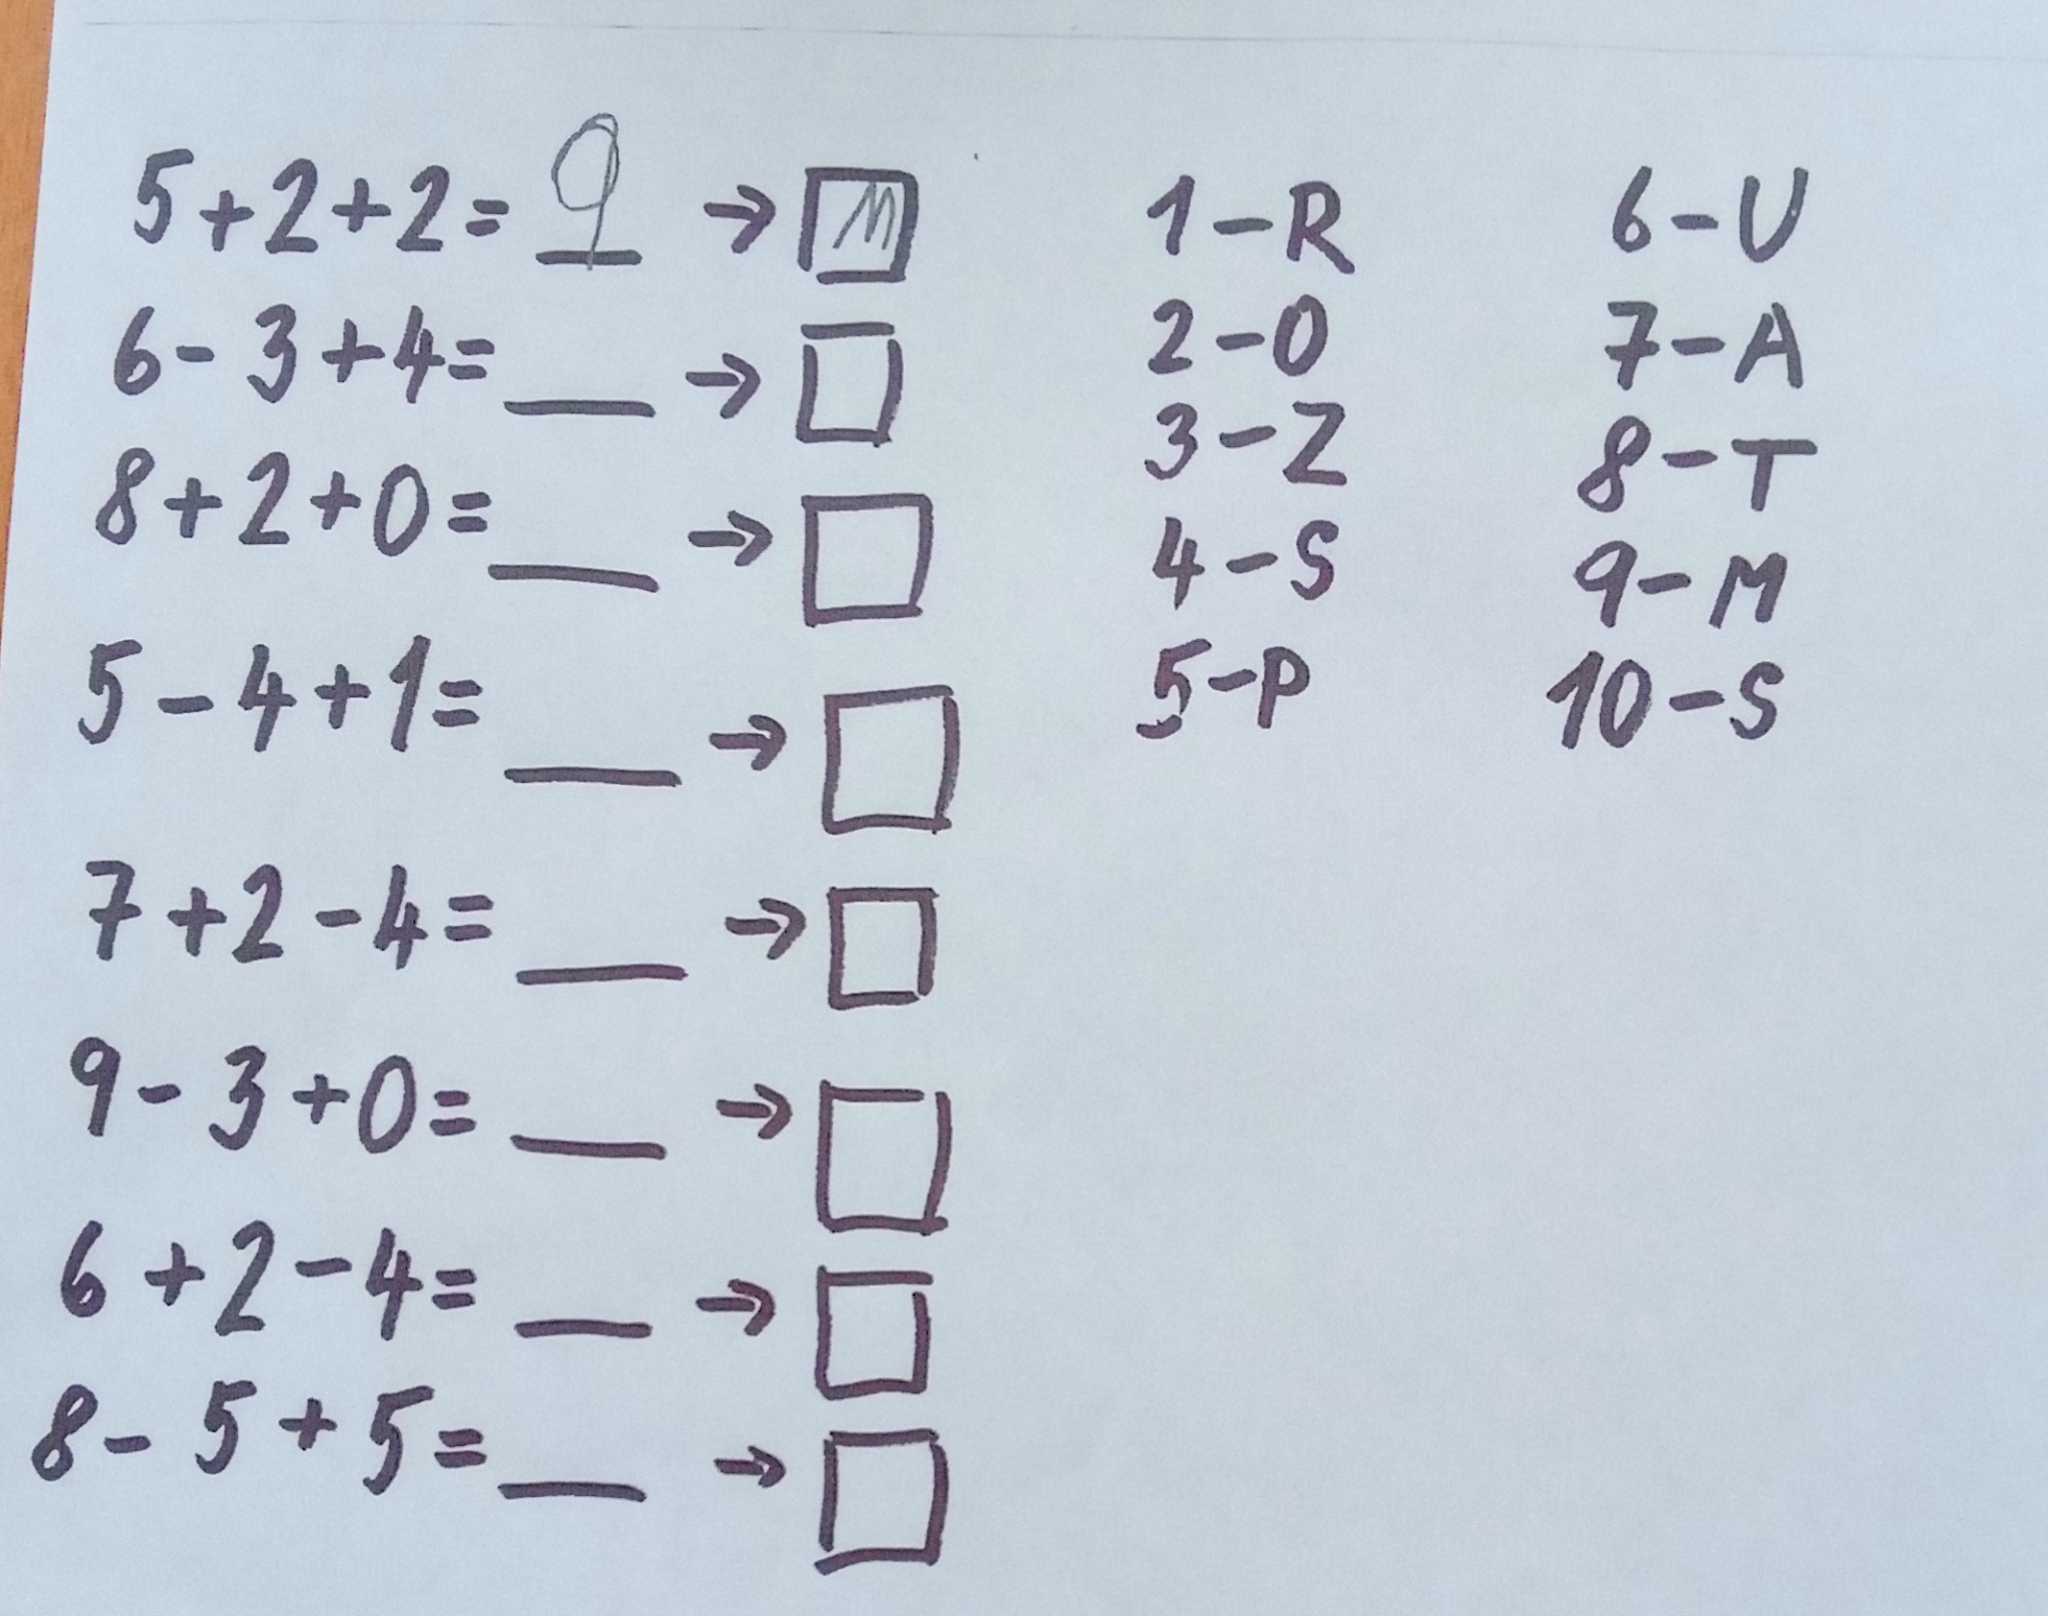 5+2+2= 9 → M
6-3+4= __ →
8+2+0= __ →
5-4+1= __ →
7+2-4= __ →
9-3+0= __ →
6+2-4= __ →
8-5+5= __ →
1-R
2-O
3-Z
4-S
5-P
6-U
7-A
8-T
9-M
10-S